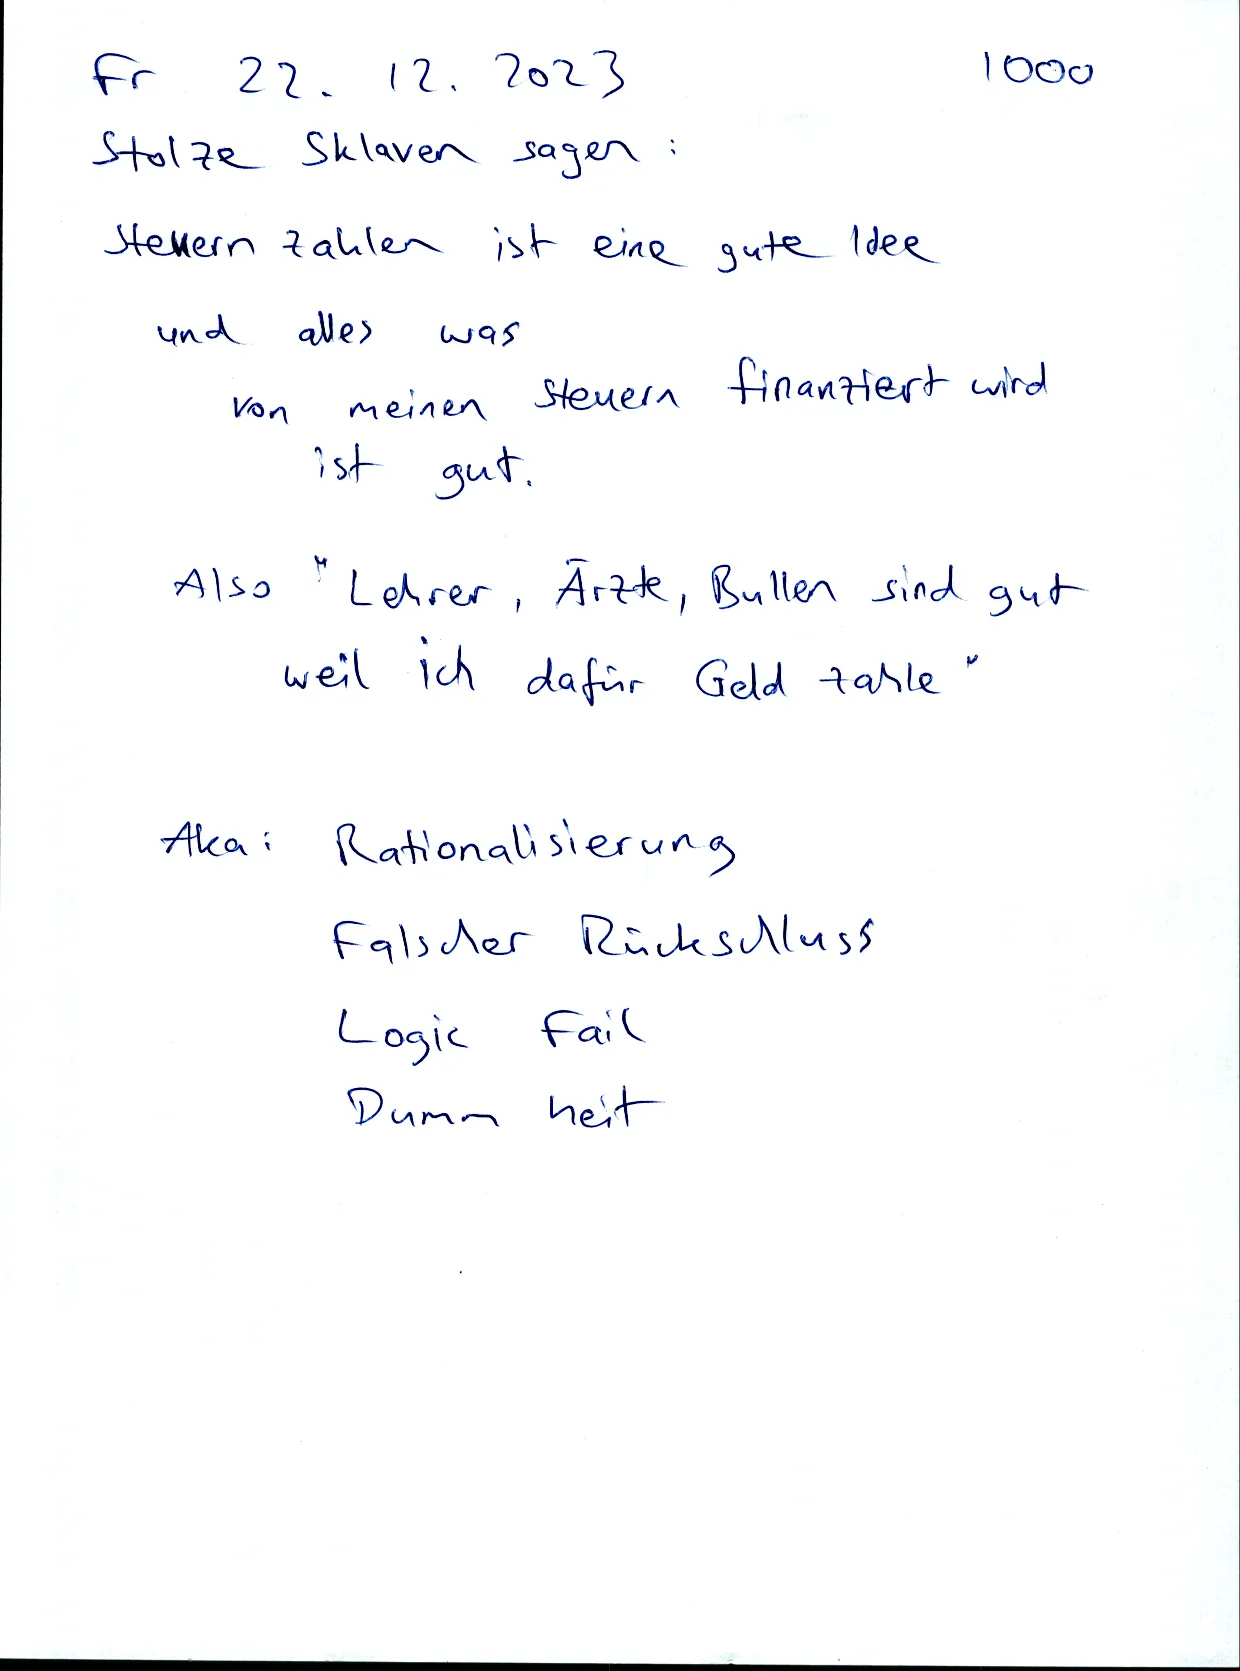 Fr 22. 12. 2023 1000
Stolze Sklaven sagen:
Steuern zahlen ist eine gute Idee
und alles was
von meinen Steuern finanziert wird
ist gut.
Also "Lehrer, Ärzte, Bullen sind gut
weil ich dafür Geld zahle"
Aka: Rationalisierung
Falscher Rückschluss
Logic Fail
Dummheit